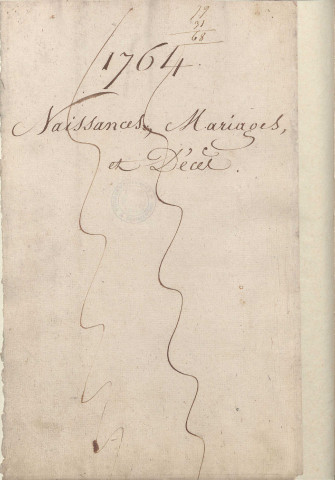 1764.
Naissances, Mariages,
et Décès.